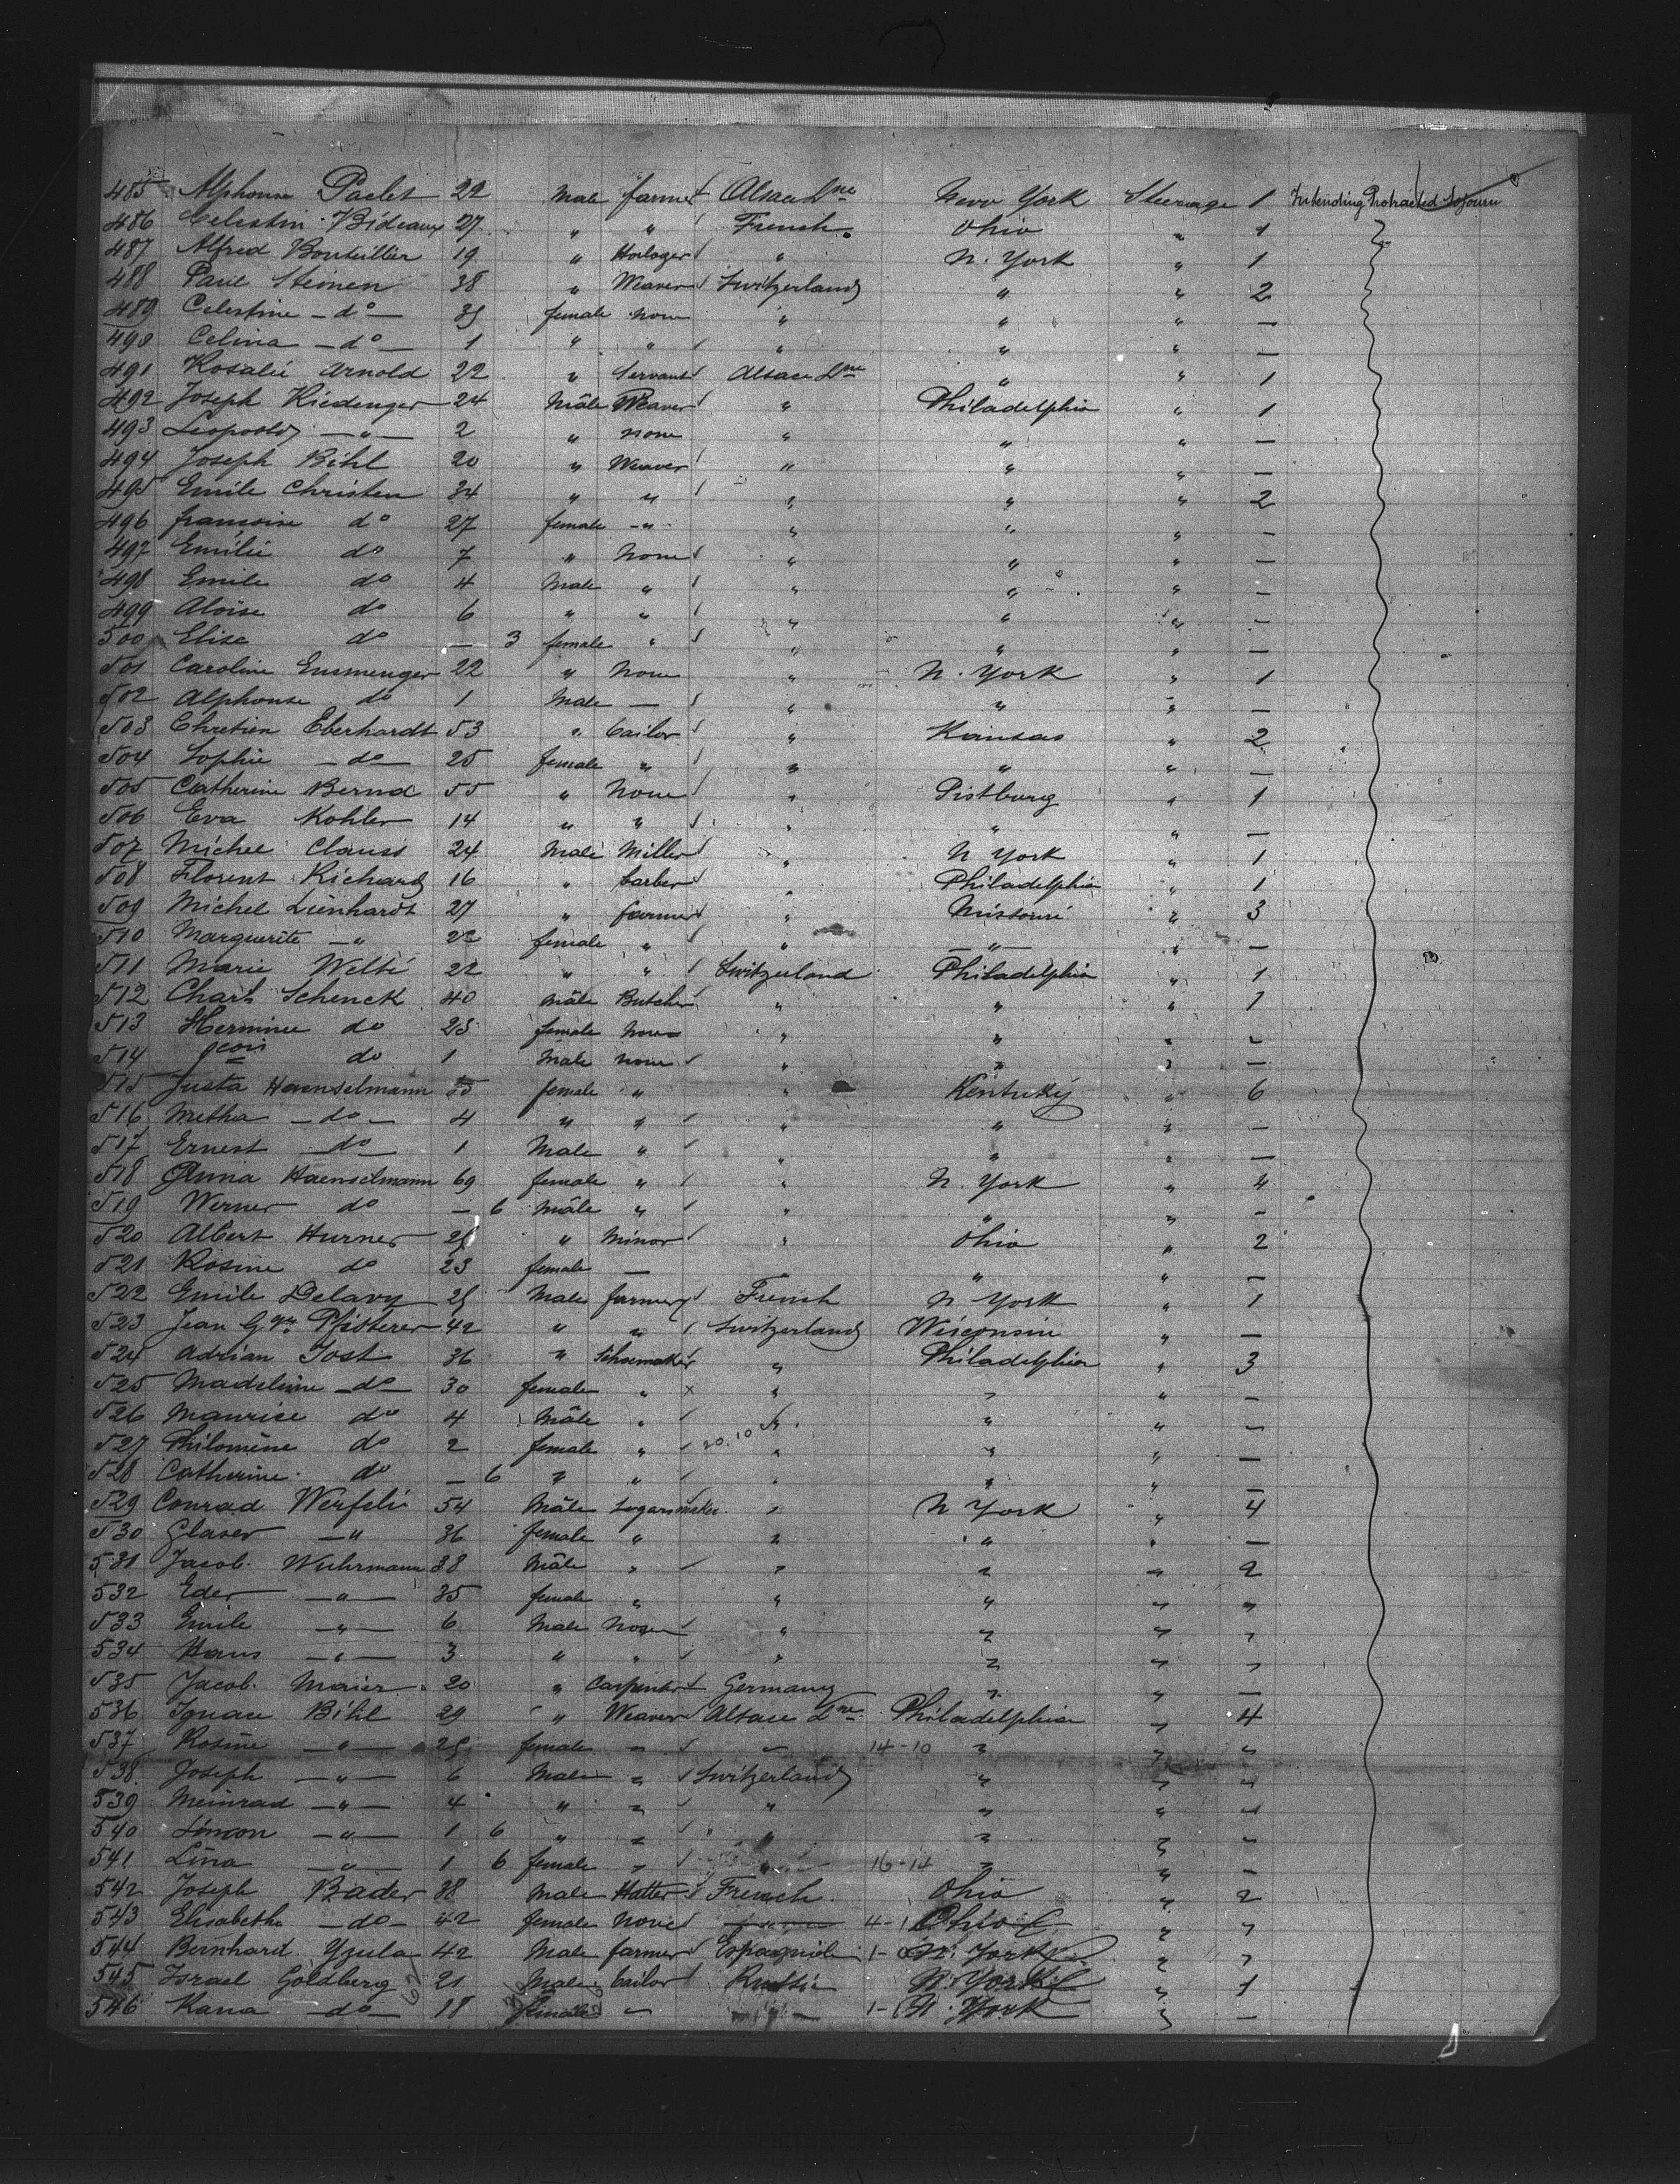 485 Alphonse Paclet 22 Male farmer Alsace Lne New York Steerage 1 Intending Protracted Sojourn
486 Celestin Bideaux 27 " " French Ohio " 1
487 Alfred Bouteillier 19 " Horloger " N. York " 1
488 Paul Steinen 38 " Waver Switzerland " " 2
489 Celestine - do - 35 female none " " " —
490 Celina - do - 1 " " " " " —
491 Rosalié Arnold 22 " Servant Alsace Lne " " 1
492 Joseph Kiedenger 24 Mâle Weaver " Philadelphia " 1
493 Leopold — " — 2 " none " " " —
494 Joseph Bihl 20 " Weaver " " " —
495 Emile Christen 34 " " " " " 2
496 françoise do 27 female - " - " " " —
497 Emilie do 7 " None " " " —
498 Emile do 4 Male " " " " —
499 Aloïse do 6 " " " " " —
500 Elise do — 3 female " " " " —
501 Caroline Ensmenger 22 " None " N. York " 1
502 Alphonse do 1 Male — " " " —
503 Chretien Eberhardt 53 " tailor " Kansas " 2
504 Sophie - do - 25 female " " " " —
505 Catherine Bernd 55 " None " Pistburg " 1
506 Eva Kohler 14 " " " " " —
507 Michel Clauss 24 Male Miller " N York " 1
508 Florent Richard 16 " barber " Philadelphia " 1
509 Michel Lienhardt 27 " farmer " Missouri " 3
510 Marguerite - " 22 female " " — " — " —
511 Marie Welté 22 " " Switzerland Philadelphia " 1
512 Charls Schenck 40 Mâle Butcher " " " 1
513 Herminee do 25 female None " " " —
514 do 1 Male none " " " —
515 Justa Haenselmann 35 female " " Kentuky " 6
516 Metha - do - 4 " " " " " —
517 Ernest do 1 Male " " " " —
518 Anna Haenselmann 69 female " " N. York " 4
519 Werner do — 6 Mâle " " " " —
520 Albert Hurner 25 " Minor " Ohio " 2
521 Rosine do 23 female — " " —
522 Emile Delavy 25 Male farmer French N York " 1
523 Jean Pfisterer 42 " " Switzerland Wisconsin " —
524 Adrian Jost 36 " Schoemaker " Philadelphia " 3
525 Madeleine - do - 30 female " x " " " —
526 Maurise do 4 Mâle " " " —
527 Philomène do 2 female " 20.10 " " " —
528 Catherine do — 6 " " " " " —
529 Conrad Werfeli 54 Mâle Segarsmaker " N York " 4
530 Glaser - " 36 female " " " " —
531 Jacob Wuhrmann 38 Mâle " " " " 2
532 Eder — " — 35 female " " " " "
533 Emile — " — 6 Male None " " " "
534 Hans — " — 3 " " " " " "
535 Jacob Maier 20 " Carpenter Germany " " —
536 Ignace Bihl 29 " Weaver Alsace Lne Philadelphia " 4
537 Rosine — " — 25 female " " 14-10 " " "
538 Joseph — " — 6 Male " Switzerland " " "
539 Meinrad — " — 4 " " " " " "
540 Simon — " — 1 6 " " " " " "
541 Lina — " — 1 6 female " " 16-14 " " —
542 Joseph Bader 38 Male Hatter French Ohio " 2
543 Elisabethe - do - 42 female None 4-1 Ohio " "
544 Bernhard Yzula 42 Male farmer Espagnole N. York " "
545 Israel Goldberg 21 Male tailor Russie N. York " 1
546 Kana - do - 18 female " N. York " —